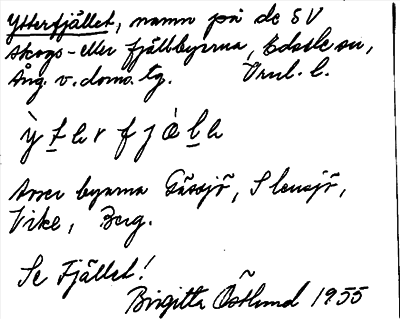 Ytterfjället, namn på de SV
skogs- eller fjällbyarna, Edsele sn,
Ång. v. doms. tg.
ỳ t e r f j
Avser byarna Gåssjö, Stensjö,
Vike, Berg.
Se Fjället!
Birgitta Östlund 1955